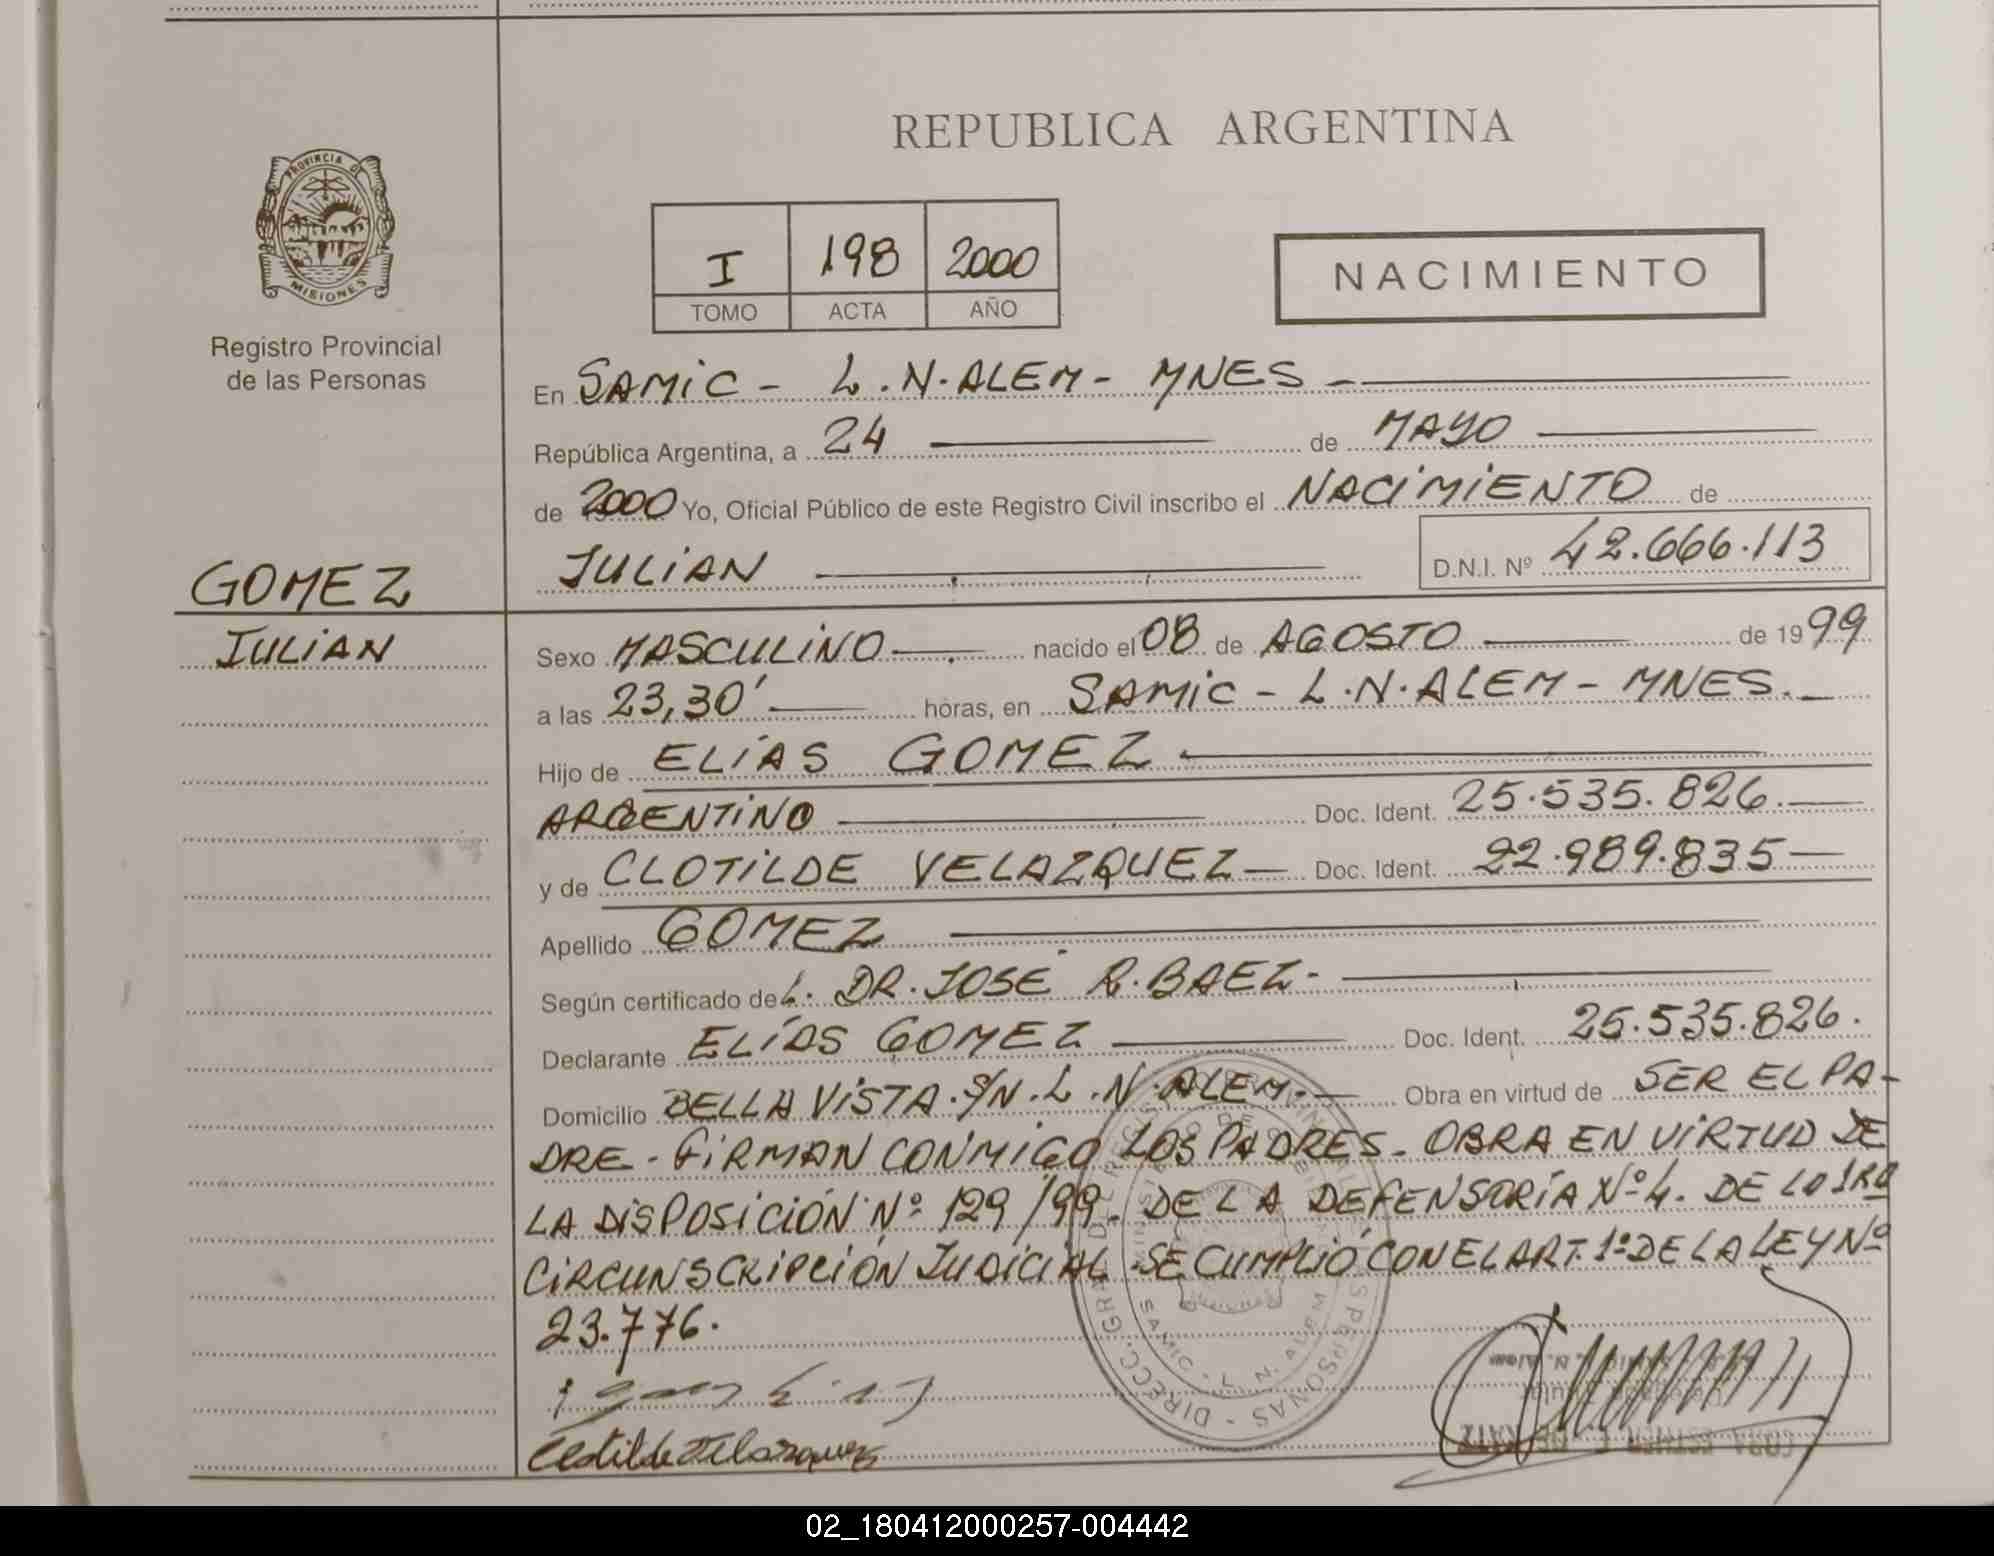 REPUBLICA ARGENTINA
PROVINCIA DE
MISIONES
Registro Provincial
de las Personas
I 198 2000
TOMO ACTA AÑO
NACIMIENTO
En SAMIC - L.N.ALEM - MNES -
República Argentina, a 24 de MAYO
de 2000 Yo, Oficial Público de este Registro Civil inscribo el NACIMIENTO de
JULIAN D.N.I. Nº 42.666.113
GOMEZ
JULIAN
Sexo MASCULINO nacido el 08 de AGOSTO de 1999
a las 23,30' horas, en SAMIC - L.N.ALEM - MNES.
Hijo de ELÍAS GOMEZ
ARGENTINO Doc. Ident. 25.535.826.
y de CLOTILDE VELAZQUEZ Doc. Ident. 22.989.835
Apellido GOMEZ
Según certificado de L. DR. JOSE R. BAEZ-
Declarante ELÍAS GOMEZ Doc. Ident. 25.535.826.
Domicilio BELLA VISTA. S/N. L.N.ALEM. Obra en virtud de SER EL PA-
DRE - FIRMAN CONMIGO LOS PADRES. OBRA EN VIRTUD DE
LA DISPOSICIÓN Nº 129/99. DE LA DEFENSORÍA Nº 4. DE LA 1RA
CIRCUNSCRIPCIÓN JUDICIAL. SE CUMPLIÓ CON EL ART. 1º DE LA LEY Nº
23.776.
SAMIC - L. N. ALEM
Clotilde Velazquez
02_180412000257-004442